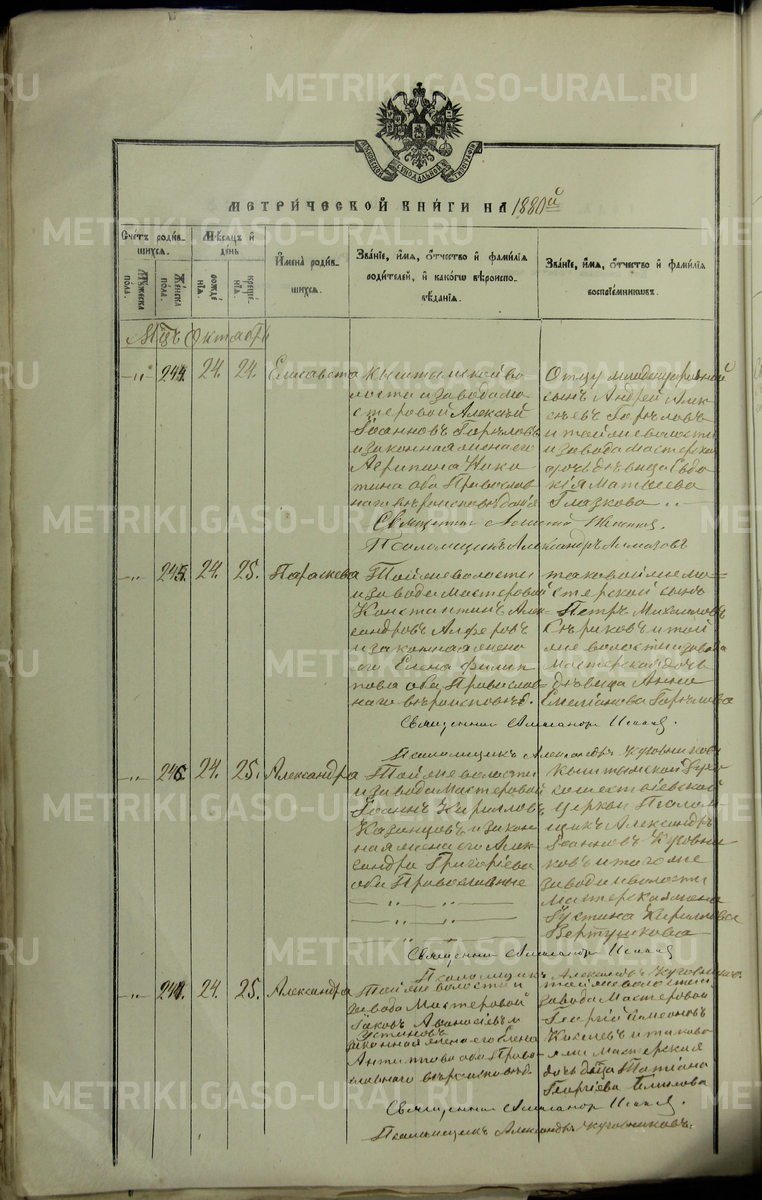 METRIKI.GASO-URAL.RU
МЕТРИ́ЧЕСКОЙ КНИ́ГИ НА 1880й
Сче́тъ роди́вшихсѧ.
Му́жеска по́ла.
Же́нска по́ла.
Мѣ́сѧцъ и҆ де́нь
рожде́нїѧ.
креще́нїѧ.
И҆мена̀ роди́вшихсѧ.
Зва́нїе, и҆́мѧ, ѻ҆́тчество и҆ фами́лїѧ
роди́телей, и҆ како́гѡ вѣроиспо-
вѣ́данїѧ.
Зва́нїе, и҆́мѧ, ѻ҆́тчество и҆ фами́лїѧ
воспрїе́мниковъ.
Мцъ Октябрь
-„- 244. 24. 24. Елисавета
Кыштымской во
лости и завода ма
стеровой Алексѣй
Іоанновъ Горѣловъ
и законная жена его
Агрипина Ники
тина оба Православ
наго вѣроисповѣданія
Отцу младенца родной
сынъ Андрей Алек
сѣевъ Горѣловъ
и той же волости
и завода мастерская
дочь дѣвица Евдо
кія Матвѣева
Глазкова
Священникъ
Псаломщикъ Александръ
-„- 245. 24. 25. Параскева
Той же волости
и завода мастеровой
Константинъ Алек-
сандровъ Алферовъ
и законная жена
его Елена Филип
пова оба Православ=
наго вѣроисповѣд.
таковой же ма=
стерской сынъ
Петръ Михаиловъ
и той
же волости и завода
мастерская дочь
дѣвица Анна
Емеліанова Горѣлова
Священникъ
Псаломщикъ Александръ Куровниковъ
-„- 246. 24. 25. Александра
Той же волости
и завода мастеровой
Іоаннъ Кирилловъ
Казанцовъ и закон
ная жена его Алек
сандра Григоріева
оба Православные
Кыштымской Духо
сошествіевской
церкви Псалом
щикъ Александръ
Іоанновъ Куровни
ковъ и того же
завода и волости
мастерская жена
Іустина Кириллова
Вертушкова
Священникъ
Псаломщикъ Александръ Куровниковъ
-„- 247. 24. 25. Александра
Той же волости и
завода Мастеровой
Іаковъ Аѳанасіевъ
Устиновъ и
законная жена его Елена
Антипова оба Право
славнаго вѣроисповѣд.
той же волости и
завода Мастеровой
Георгій Симеоновъ
Киселевъ и таково-
й же мастерская
дочь дѣвица Татіана
Георгіева
Священникъ
Псаломщикъ Александръ Куровниковъ.